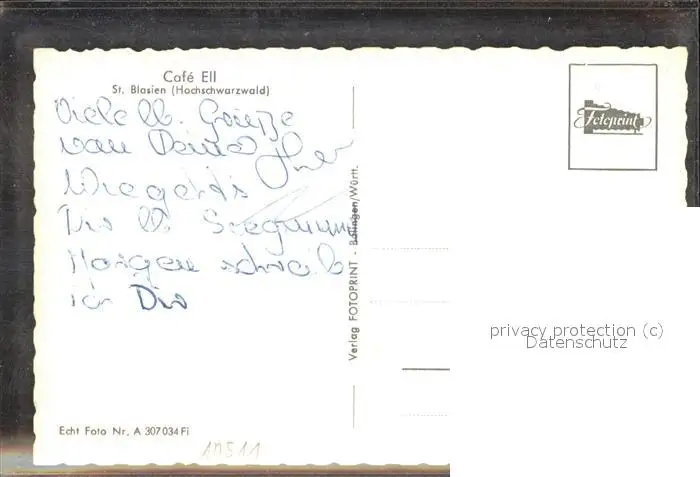 Café Ell
St. Blasien (Hochschwarzwald)
Viele lb. Grüße
von Deiner
Dir lb.
Morgen schreib
ich Dir
Verlag FOTOPRINT - Balingen/Württ.
Fotoprint
privacy protection (c)
Datenschutz
Echt Foto Nr. A 307034 Fi